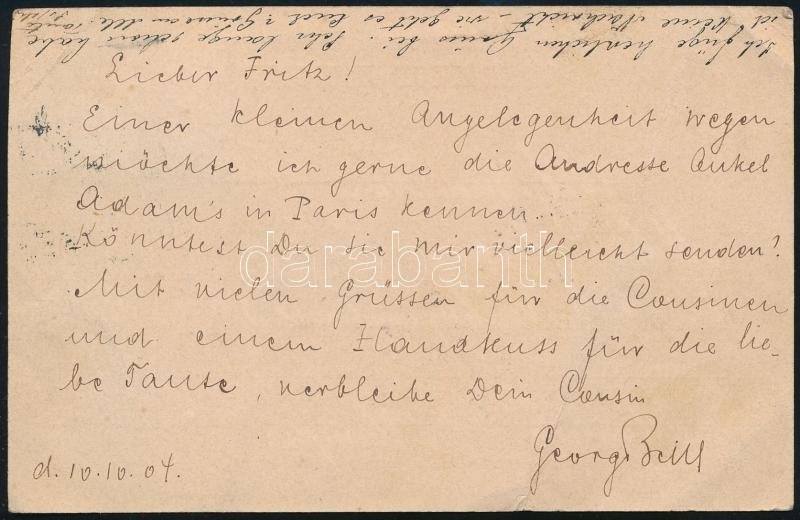 Lieber Fritz!
Einer kleinen Angelegenheit wegen
möchte ich gerne die Addresse Onkel
Adam's in Paris kennen...
Könntest Du sie mir vielleicht senden?
Mit vielen Grüssen für die Cousinen
und einem Handkuss für die lie-
be Tante, verbleibe Dein Cousin
Georg
d. 10.10.04.
Ich füge herzlichen Gruss bei. Sehr lange schon habe
ich keine Nachricht – wie geht es Euch? Grüsse an alle.
darabanth